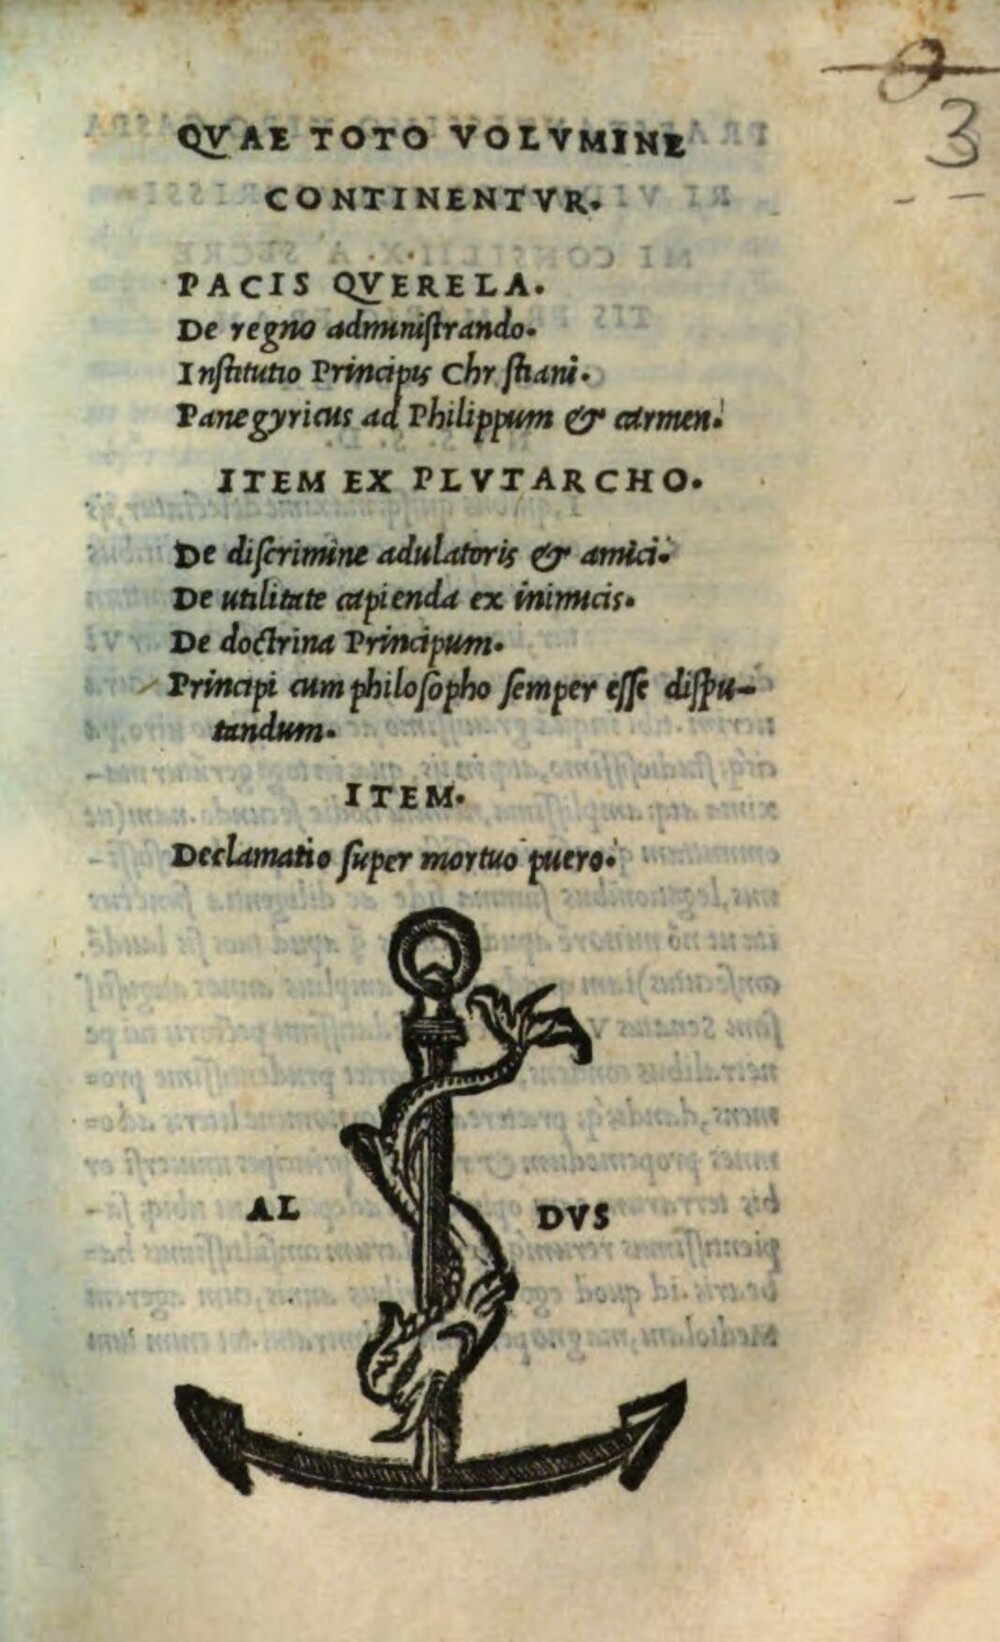 3
QVAE TOTO VOLVMINE
CONTINENTVR.
PACIS QVERELA.
De regno adminiſtrando.
Inſtitutio Principis Chr ſtiani.
Panegyricus ad Philippum & carmen.
ITEM EX PLVTARCHO.
De diſcrimine adulatoris & amici.
De utilitate capienda ex inimicis.
De doctrina Principum.
Principi cum philoſopho ſemper eſſe diſpu-
tandum.
ITEM.
Declamatio ſuper mortuo puero.
AL DVS